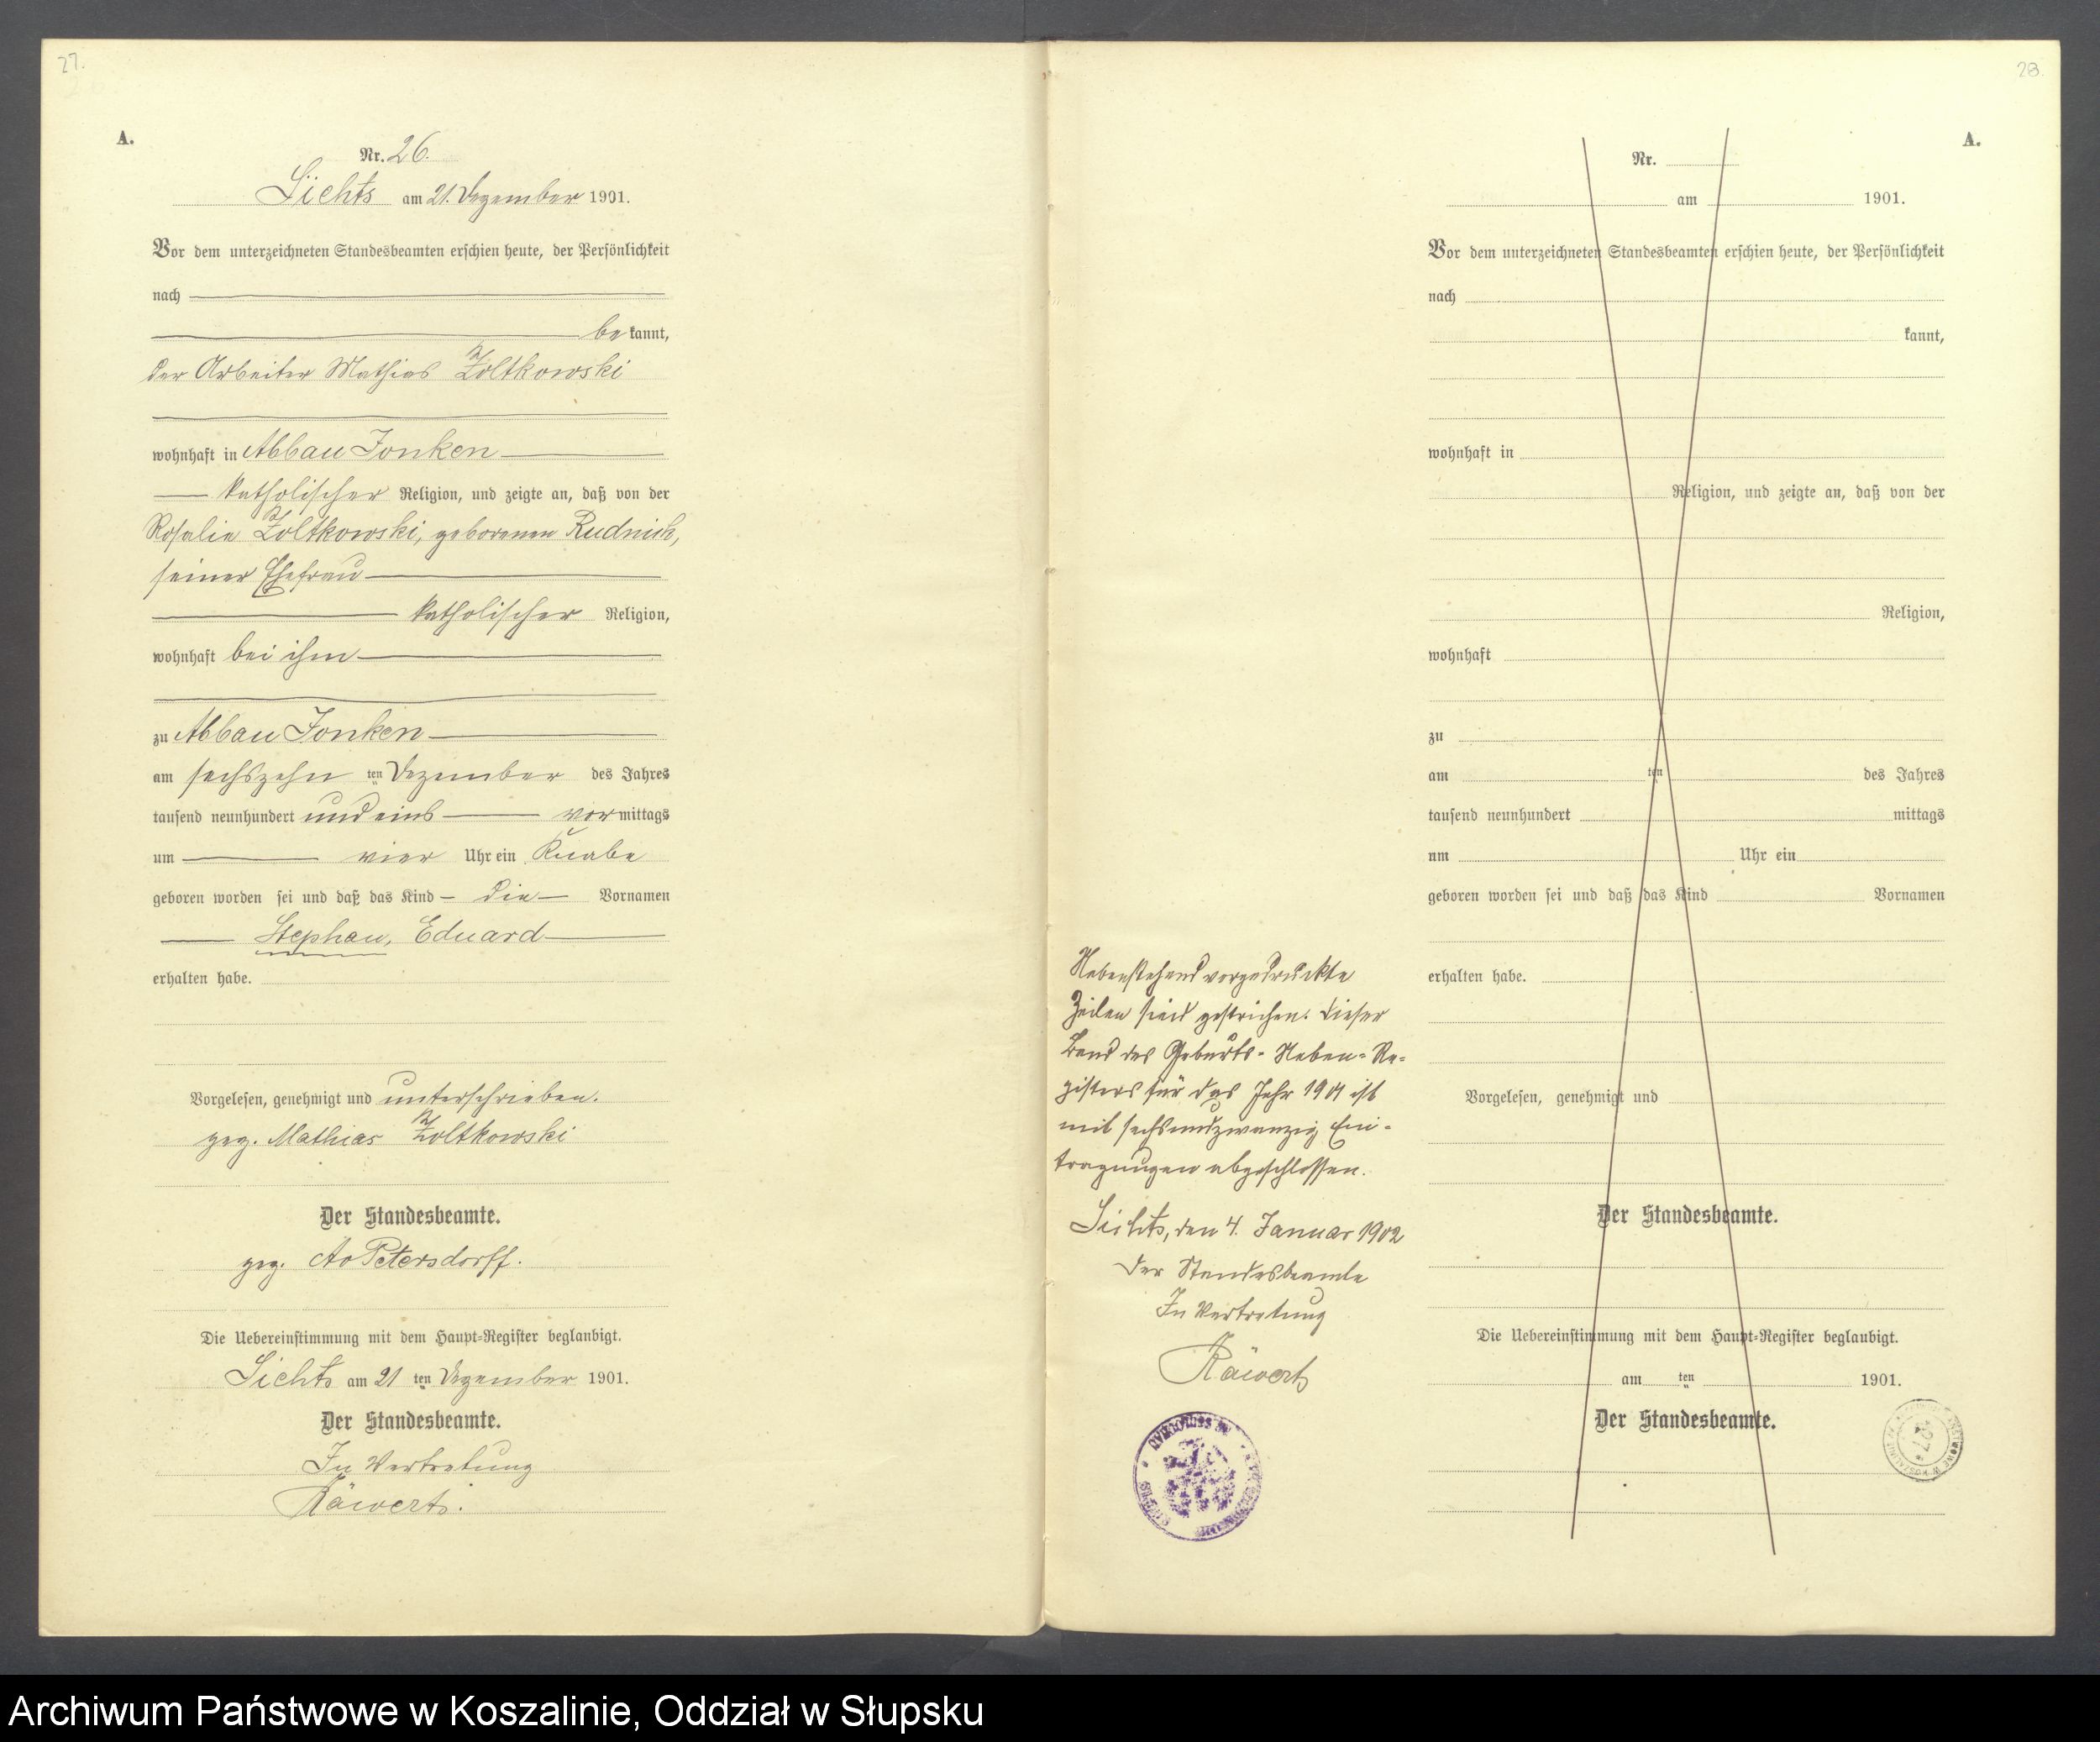 27.
A.
Nr. 26.
Lichts am 21. Dezember 1901.
Vor dem unterzeichneten Standesbeamten erschien heute, der Persönlichkeit
nach
bekannt,
der Arbeiter Mathias Zoltkowski
wohnhaft in Abbau Jonken
katholischer Religion, und zeigte an, daß von der
Rosalie Zoltkowski, geborenen Rudnick,
seiner Ehefrau
katholischer Religion,
wohnhaft bei ihm
zu Abbau Jonken
am sechszehn ten Dezember des Jahres
tausend neunhundert und eins vormittags
um vier Uhr ein Knabe
geboren worden sei und daß das Kind die Vornamen
Stephan, Eduard
erhalten habe.
Vorgelesen, genehmigt und unterschrieben.
gez. Mathias Zoltkowski
Der Standesbeamte.
gez. Petersdorff.
Die Uebereinstimmung mit dem Haupt-Register beglaubigt.
Lichts am 21 ten Dezember 1901.
Der Standesbeamte.
In Vertretung
Räwert.
28.
A.
Nr.
am 1901.
Vor dem unterzeichneten Standesbeamten erschien heute, der Persönlichkeit
nach
kannt,
wohnhaft in
Religion, und zeigte an, daß von der
Religion,
wohnhaft
zu
am ten des Jahres
tausend neunhundert mittags
um Uhr ein
geboren worden sei und daß das Kind Vornamen
erhalten habe.
Vorgelesen, genehmigt und
Der Standesbeamte.
Die Uebereinstimmung mit dem Haupt-Register beglaubigt.
am ten 1901.
Der Standesbeamte.
Nebenstehend vorgedruckte
Zeilen sind gestrichen. Dieser
Band des Geburts-Neben-Re-
gisters für das Jahr 1901 ist
mit sechsundzwanzig Ein-
tragungen abgeschlossen.
Lichts, den 4. Januar 1902
Der Standesbeamte
In Vertretung
Räwert
Archiwum Państwowe w Koszalinie, Oddział w Słupsku